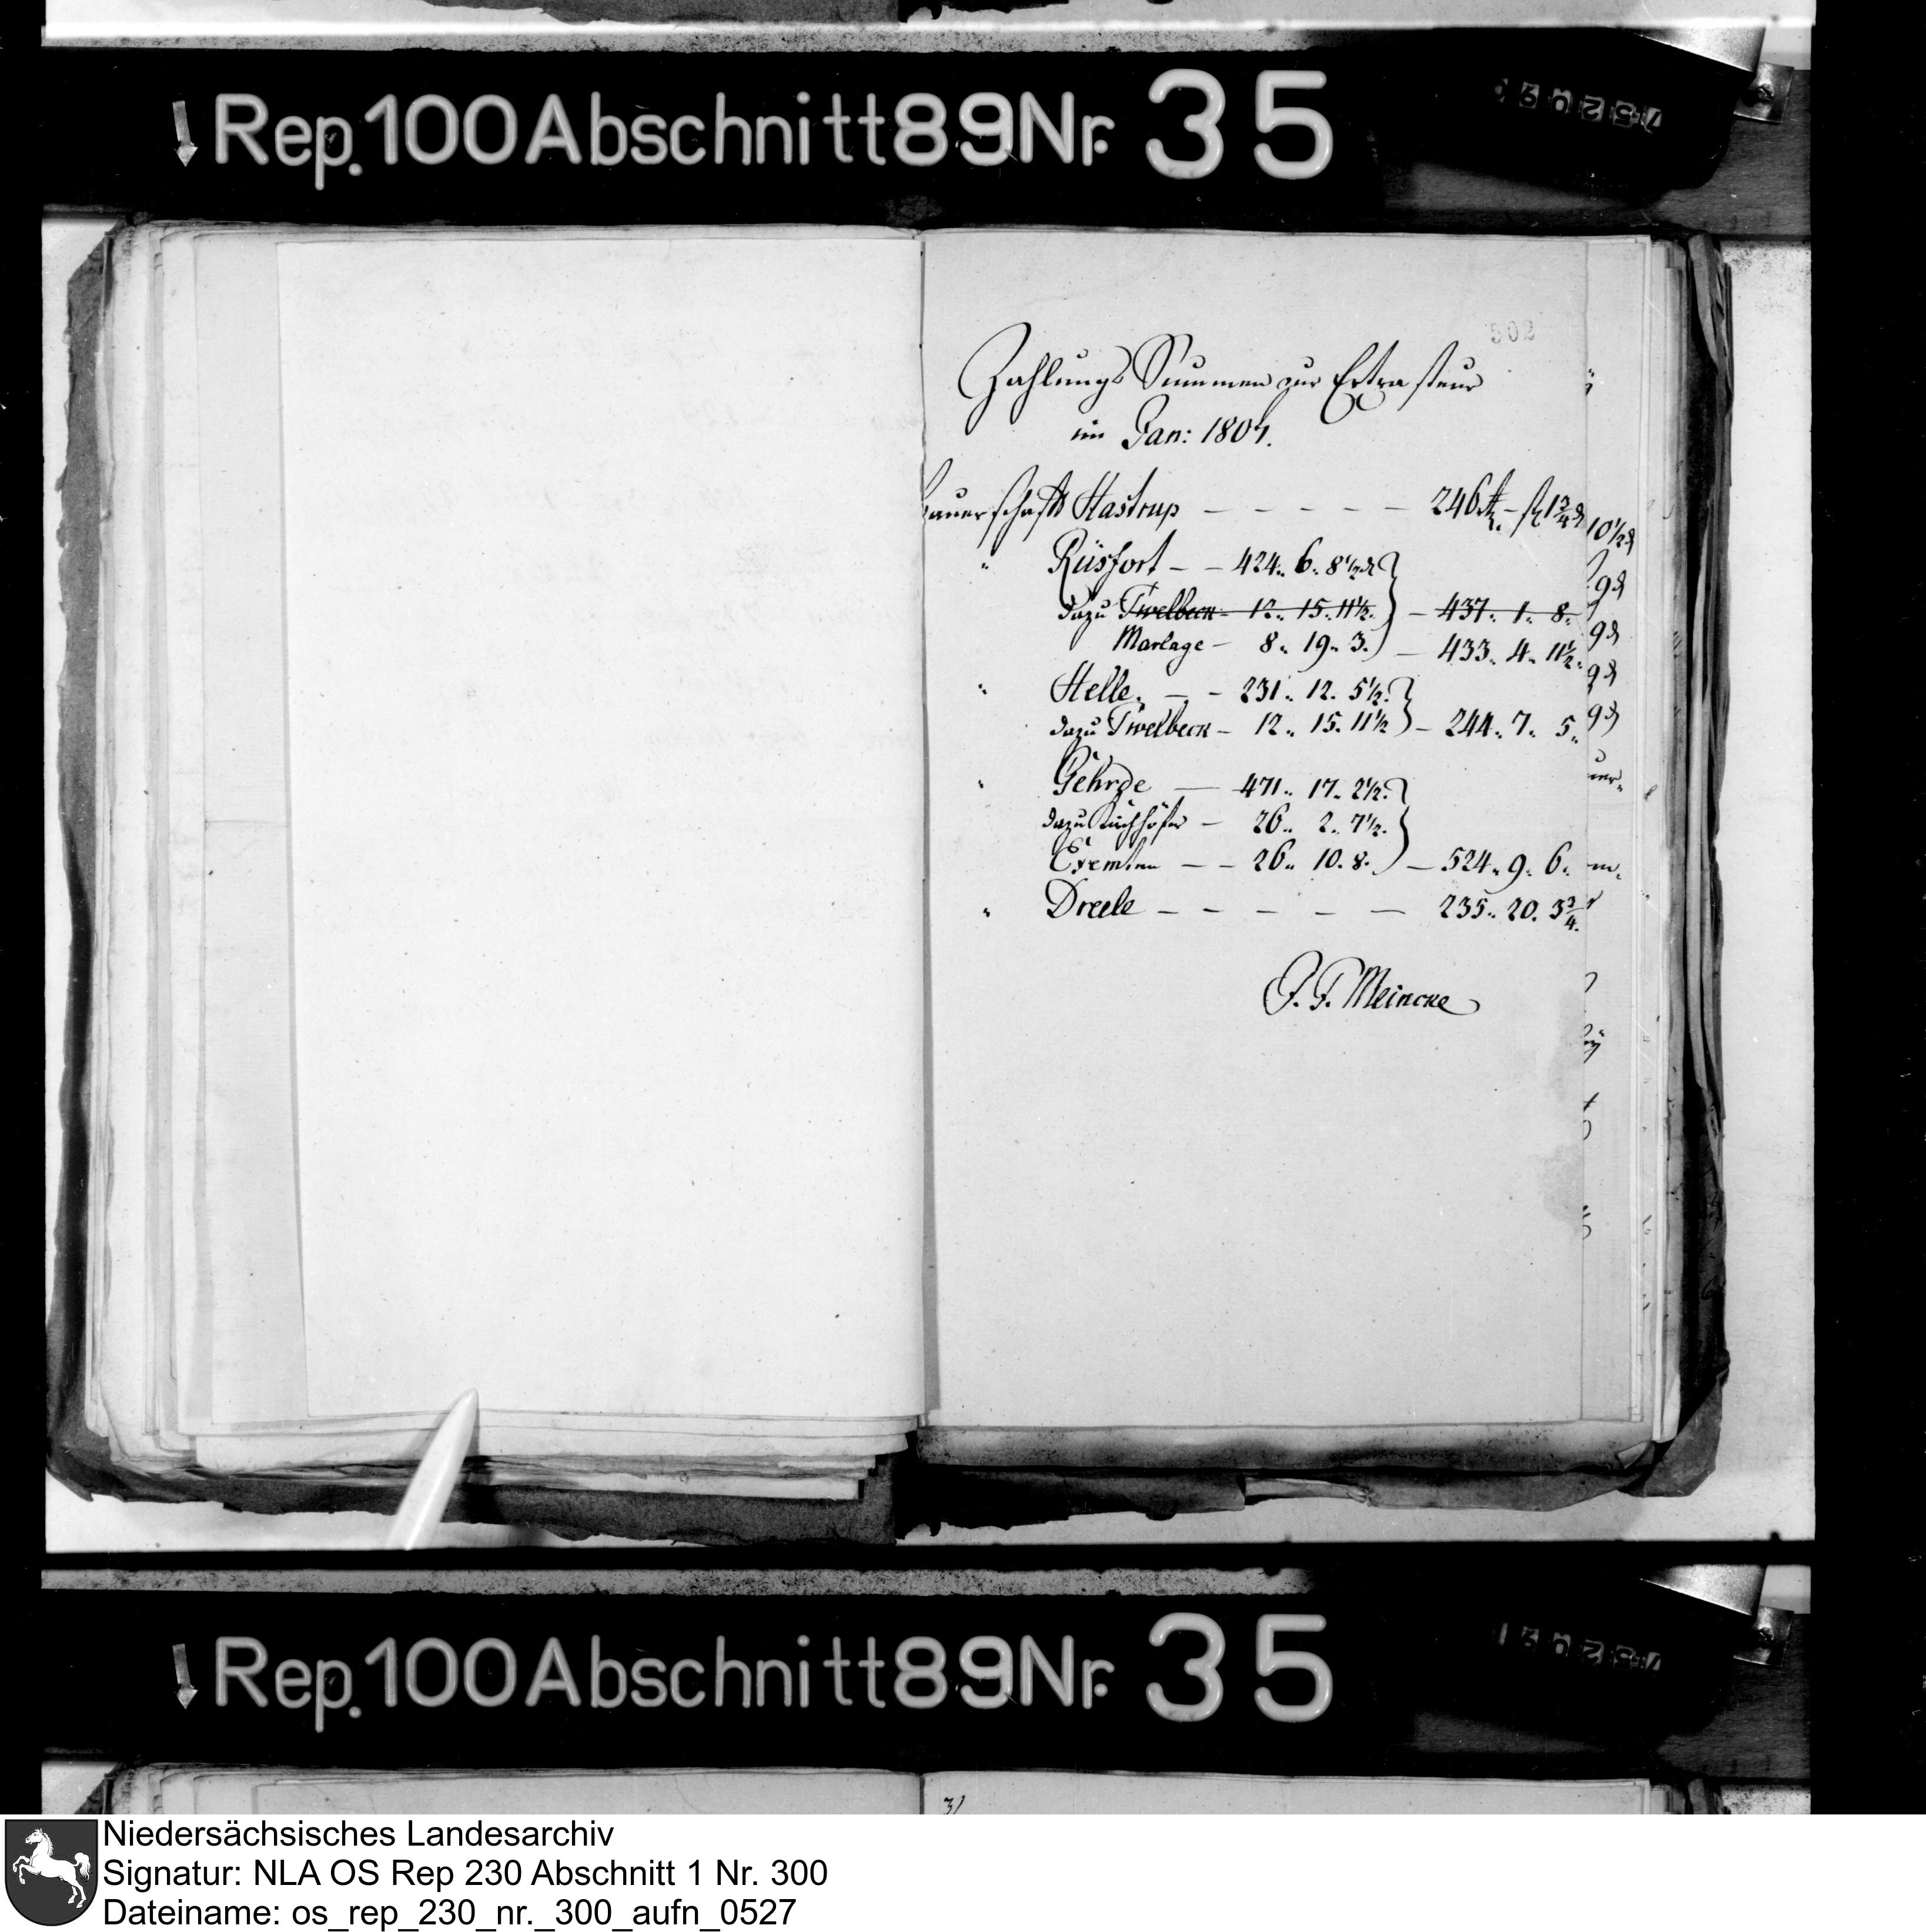 Rep. 100 Abschnitt 89 Nr. 35
502
Zahlungs Summen zur Extrasteur
im Jan: 1804.
Bauerschaft Hastrup — — — — — 246 rt — ß 1 3/4 d
" Rüsfort — — 424. 6. 8 1/2 d
dazu Twelbeck — 12. 15. 11 1/2. — 437. 1. 8.
Marlage — 8. 19. 3. — 433. 4. 11 1/2.
" Helle. — — 231. 12. 5 1/2.
dazu Twelbeck — 12. 15. 11 1/2 — 244. 7. 5.
" Gehrde — 471. 17. 2 1/2.
dazu Kirchhöfer — 26. 2. 7 1/2.
Exemten — — 26. 10. 8. — 524. 9. 6.
" Dreele — — — — — 235. 20. 3 3/4.
J. F. Meincke
10 1/2 d
9 d
9 d
9 d
9 d
Rep. 100 Abschnitt 89 Nr. 35
Niedersächsisches Landesarchiv
Signatur: NLA OS Rep 230 Abschnitt 1 Nr. 300
Dateiname: os_rep_230_nr._300_aufn_0527